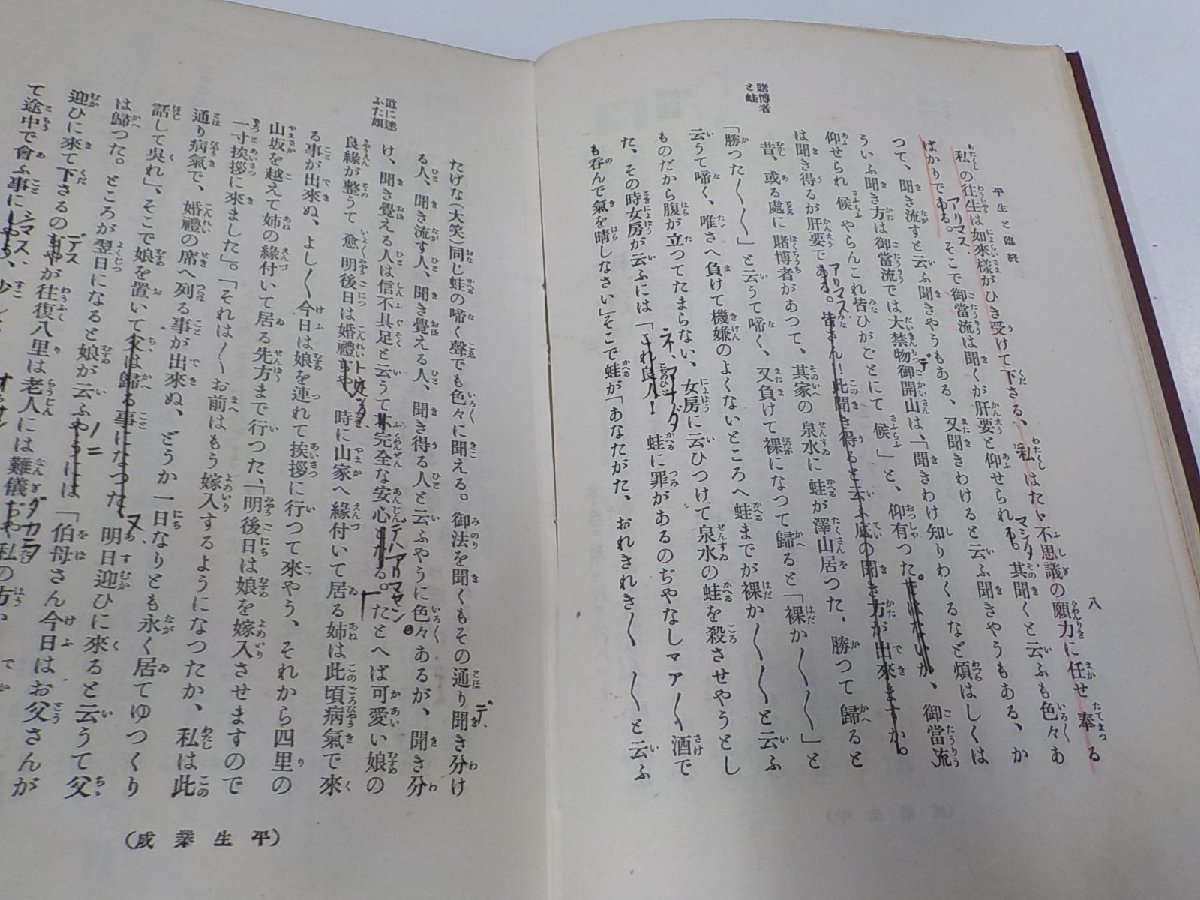 平生と臨終
八
私の往生は如來樣がひき受けて下さる、私はたゞ不思議の願力に任せ奉る
ばかりである。そこで御當流は聞くが肝要と仰せられ 其聞くと云ふも色々あ
アリマス
マシタ
つて、聞き流すと云ふ聞きやうもある、又聞きわけると云ふ聞きやうもある、か
うい ふ聞き方は御當流では大禁物御開山は、「聞きわけ知りわくるなど煩はしくは
デ
仰せられ候やらんこれ皆ひがごとにて候」と、仰有つた が、御當流
は聞き得るが肝要で ある。皆さん!此聞き得ると云ふ 底の聞き方が出來ますか。
アリマス
賭博者と蛙
昔、或る處に賭博者があつて、其家の泉水に蛙が澤山居つた。勝つて歸ると
「勝つた〱〱」と云うて啼く、又負けて裸になつて歸ると「裸か〱〱〱」と
云うて啼く、唯さへ負けて機嫌のよくないところへ蛙までが裸か〱〱〱と云ふ
ものだから腹が立つてたまらない、女房に云ひつけて泉水の蛙を殺させやうとし
た、その時女房が云ふには「これ良人!蛙に罪があるのぢやなしマア〱酒で
も呑んで氣を晴しなさい」そこで蛙が「あなたがた、おれきれき〱〱〱と云ふ
たげな(大笑)同じ蛙の啼く聲でも色々に聞える。御法を聞くもその通り聞き分け
デ、
る人、聞き流す人、聞き覺える人、聞き得る人と云ふやうに色々あるが、聞き分
け、聞き覺える人は信不具足と云うて不完全な安心 たとへば可愛い娘の
デハアリマセン
道に迷ふた娘
良緣が整うて愈明後日は婚禮 時に山家へ緣付いて居る姉は此頃病氣で來
る事が出來ぬ、よし〱今日は娘を連れて挨拶に行つて來やう、それから四里の
山坂を越えて姉の緣付いて居る先方まで行つた、「明後日は娘を嫁入させますので
一寸挨拶に來ました」。「それは〱お前はもう嫁入するようになつたか、私は此
通り病氣で、婚禮の席へ列る事が出來ぬ、どうか一日なりとも永く居てゆつくり
話して吳れ」、そこで娘を置いて父は歸る事になつた、明日迎ひに來ると云うて父
は歸つた。ところが翌日になると娘が云ふやうには「伯母さん今日はお父さんが
ノニ
迎ひに來て下さるの ぢやが往復八里は老人には難儀ぢや私の方
デス
ダカラ
て途中で會ふ事に
マス
(平生業成)